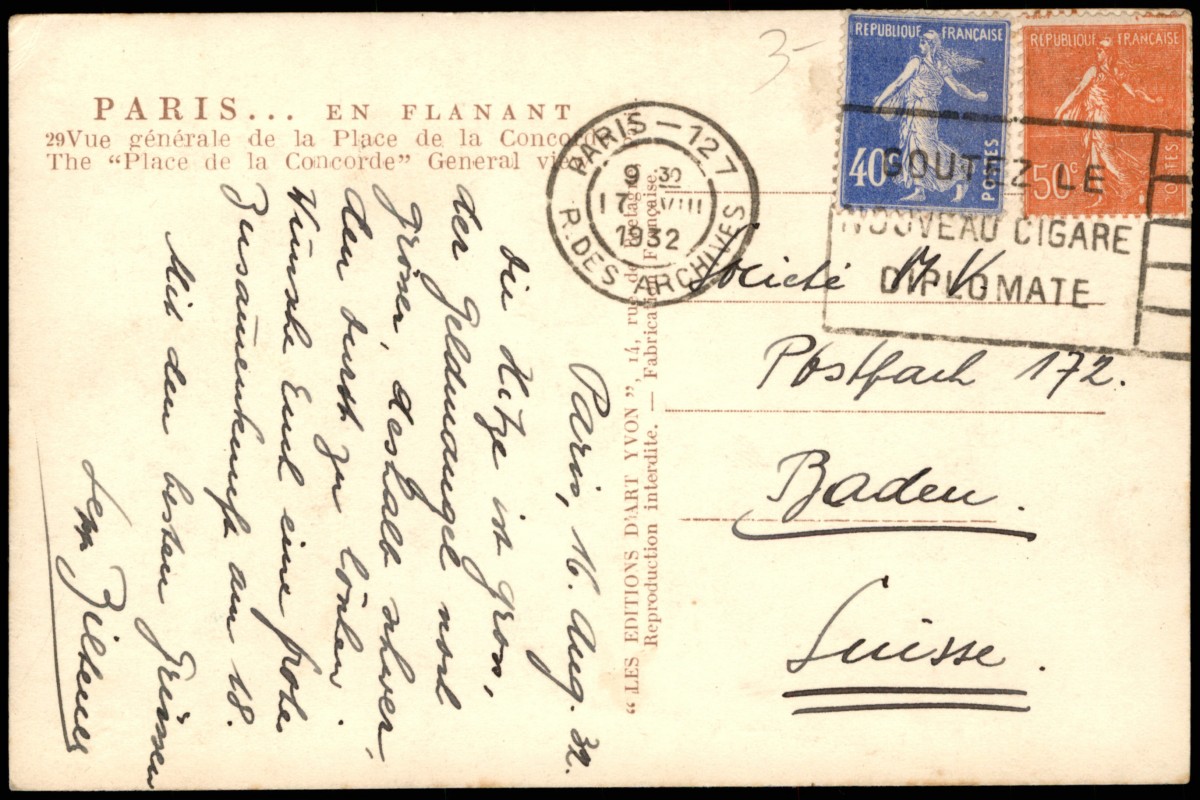 3-
PARIS... EN FLANANT
29 Vue générale de la Place de la Conco
The "Place de la Concorde" General vie
RÉPUBLIQUE FRANÇAISE
40c
POSTES
RÉPUBLIQUE FRANÇAISE
50c
POSTES
PARIS-127
9 30
17 VIII
1932
R. DES ARCHIVES
GOUTEZ LE
NOUVEAU CIGARE
DIPLOMATE
Paris, 16. Aug. 32.
Die Hitze ist gross,
der Geldmangel noch
grösser, deshalb schwer,
den Durst zu löschen.
Wünsche Euch eine frohe
Zusammenkunft am 18.
Mit den besten Grüssen
"LES EDITIONS D'ART YVON", 14, rue de Bretagne
Reproduction interdite. — Fabrication Française.
Société M. K.
Postfach 172.
Baden.
Suisse.